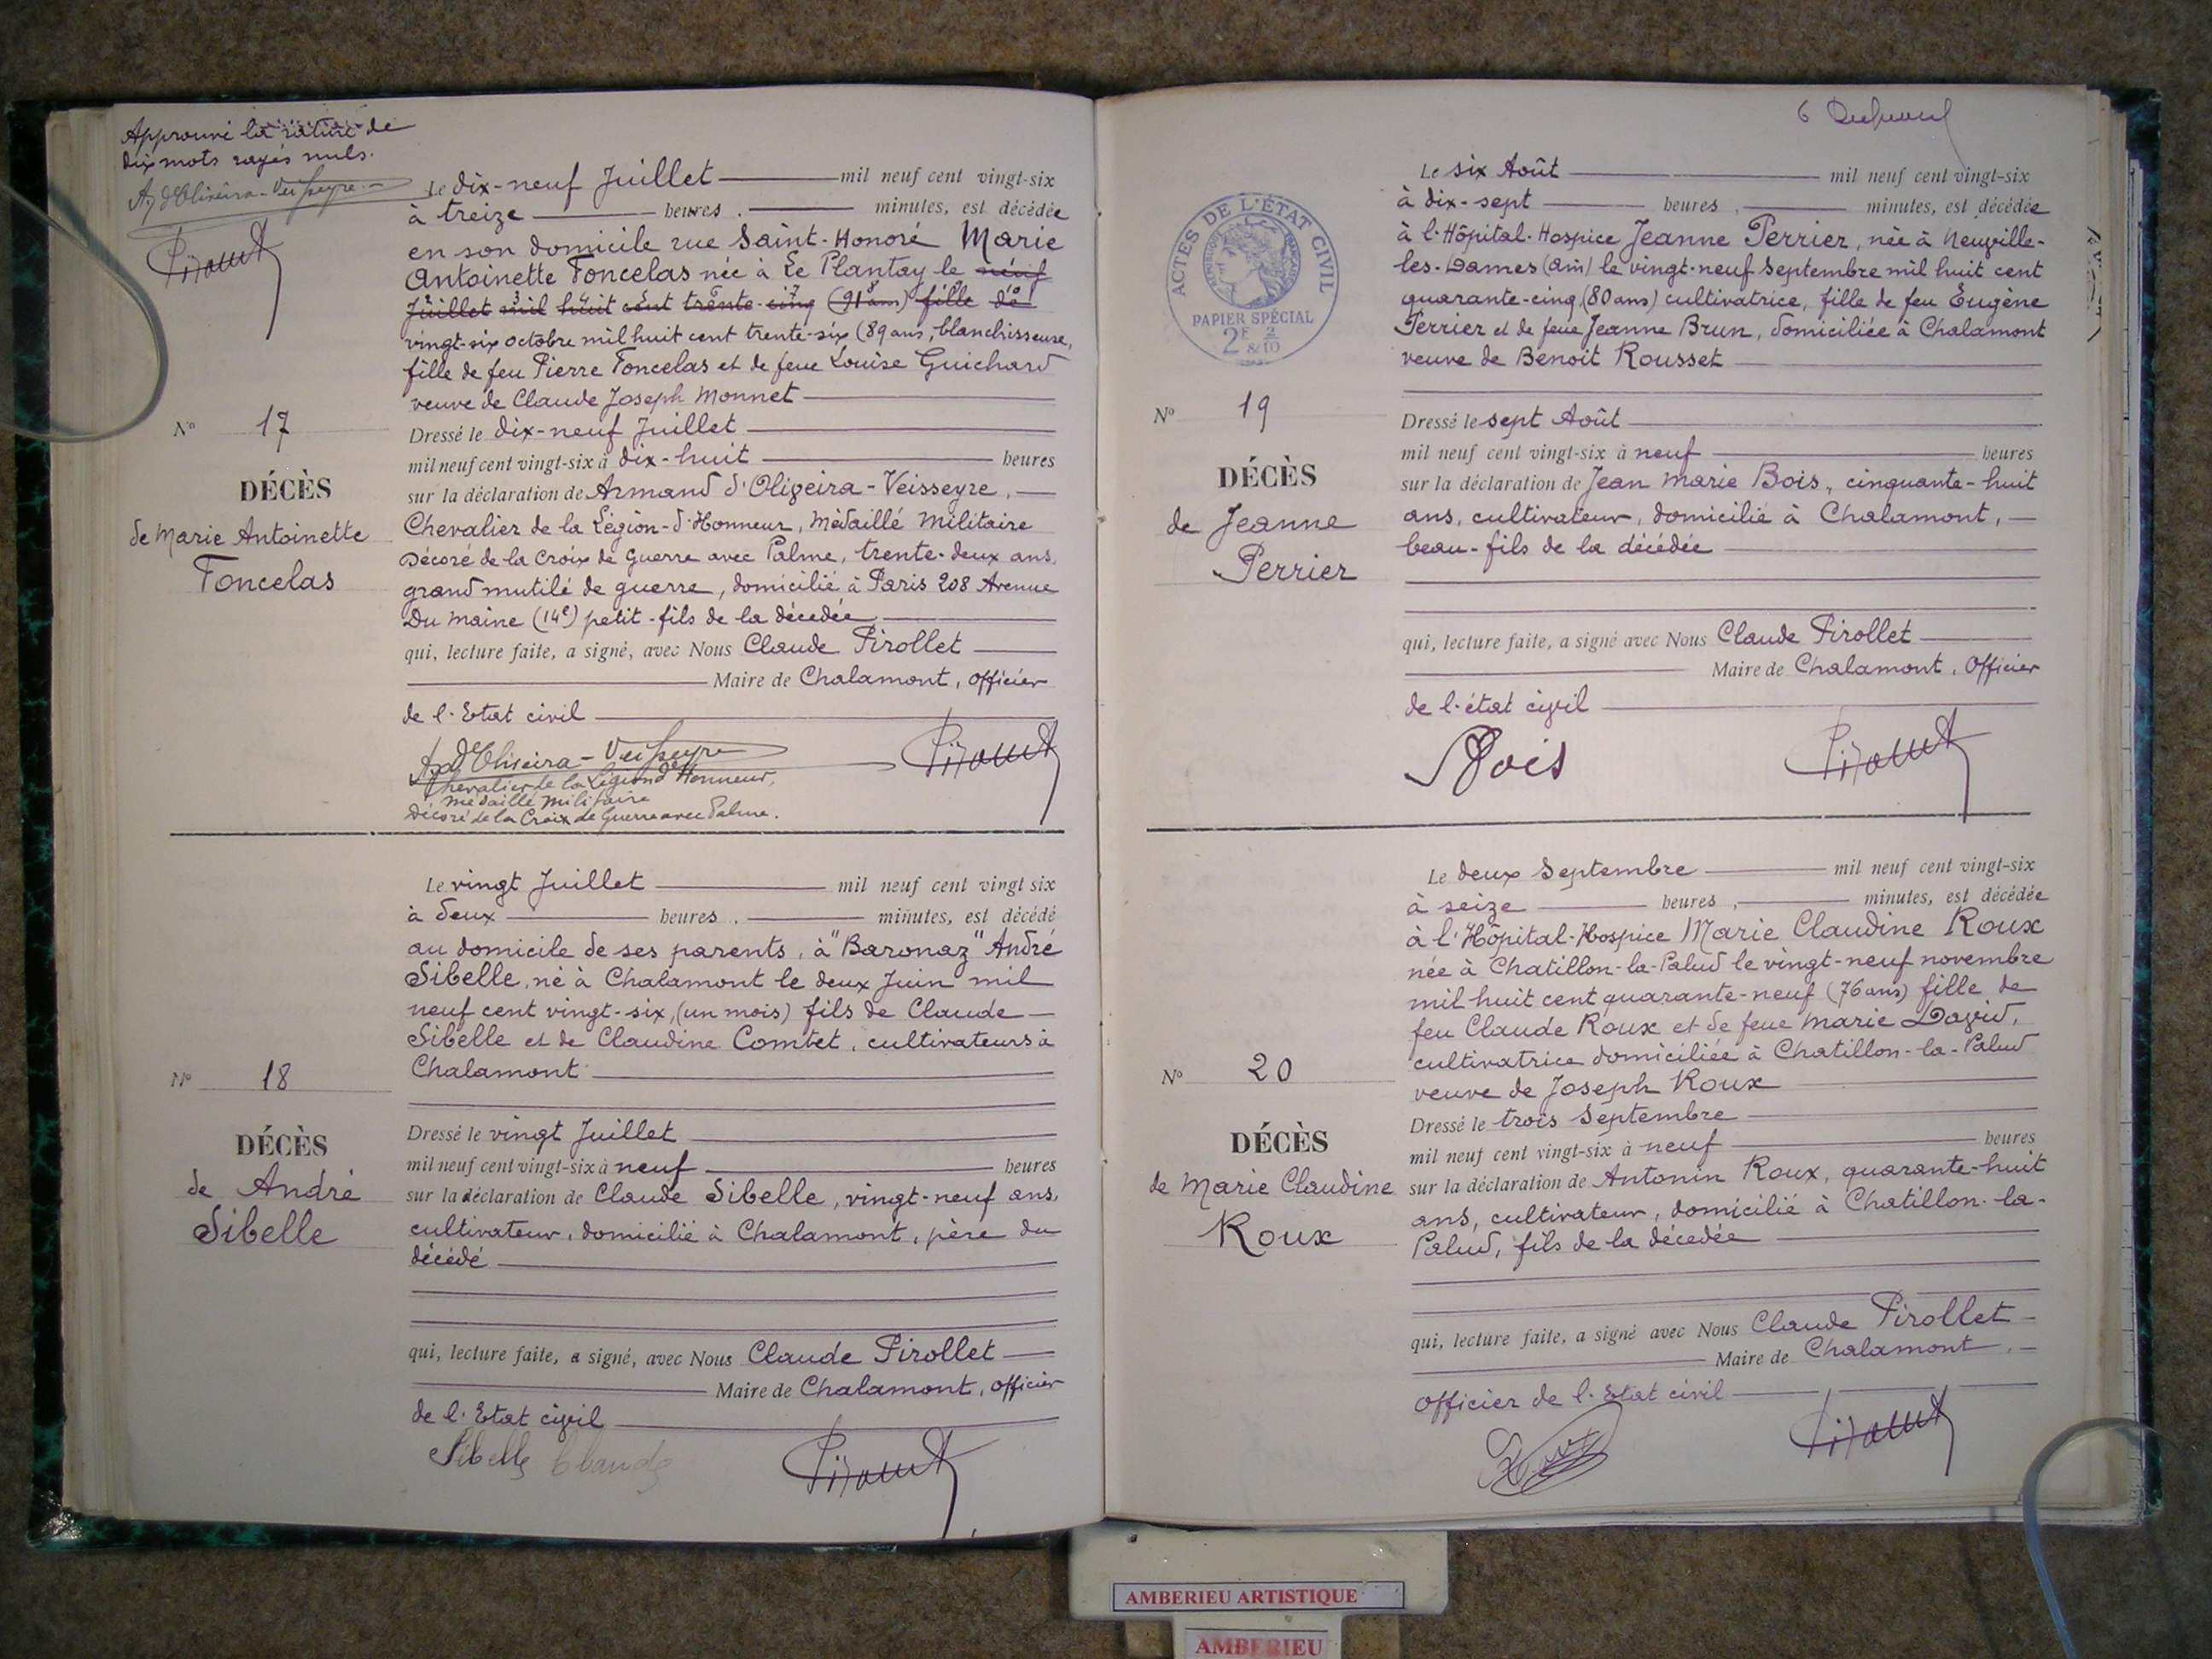 Approuvé la rature de
dix mots rayés nuls.
A d'Oliveira-Veisseyre
Le dix-neuf Juillet mil neuf cent vingt-six
à treize heures, minutes, est décédée
en son domicile rue Saint-Honoré Marie
Antoinette Foncelas née à Le Plantay le neuf
Juillet mil huit cent trente-cinq (91 ans) fille de
vingt-six octobre mil huit cent trente-six (89 ans, blanchisseuse,
fille de feu Pierre Foncelas et de feue Louise Guichard
veuve de Claude Joseph Monnet
Nº 17
DÉCÈS
de Marie Antoinette
Foncelas
Dressé le dix-neuf Juillet
mil neuf cent vingt-six à dix-huit heures
sur la déclaration de Armand d'Oliveira-Veisseyre,
Chevalier de la Légion-d'Honneur, Médaillé Militaire
Décoré de la Croix de Guerre avec Palme, trente-deux ans,
grand mutilé de guerre, domicilié à Paris 208 Avenue
Du Maine (14e) petit-fils de la décédée
qui, lecture faite, a signé, avec Nous Claude Pirollet
Maire de Chalamont, Officier
de l'Etat civil
A d'Oliveira-Veisseyre
Chevalier de la Légion d'Honneur,
Médaillé Militaire
Décoré de la Croix de Guerre avec Palme.
Le vingt Juillet mil neuf cent vingt six
à deux heures, minutes, est décédé
au domicile de ses parents, à "Baronaz" André
Sibelle, né à Chalamont le deux Juin mil
neuf cent vingt-six, (un mois) fils de Claude
Sibelle et de Claudine Combet, cultivateurs à
Chalamont
Nº 18
DÉCÈS
de André
Sibelle
Dressé le vingt Juillet
mil neuf cent vingt-six à neuf heures
sur la déclaration de Claude Sibelle, vingt-neuf ans,
cultivateur, domicilié à Chalamont, père du
décédé
qui, lecture faite, a signé, avec Nous Claude Pirollet
Maire de Chalamont, Officier
de l'Etat civil
Sibelle Claude
6
ACTES DE L'ÉTAT CIVIL
PAPIER SPÉCIAL
2F 2/10
Le six Août mil neuf cent vingt-six
à dix-sept heures, minutes, est décédée
à l'Hôpital-Hospice Jeanne Perrier, née à Neuville-
les-Dames (Ain) le vingt-neuf Septembre mil huit cent
quarante-cinq, (80 ans) cultivatrice, fille de feu Eugène
Perrier et de feue Jeanne Brun, domiciliée à Chalamont
veuve de Benoit Rousset
Nº 19
DÉCÈS
de Jeanne
Perrier
Dressé le sept Août
mil neuf cent vingt-six à neuf heures
sur la déclaration de Jean Marie Bois, cinquante-huit
ans, cultivateur, domicilié à Chalamont,
beau-fils de la décédée
qui, lecture faite, a signé avec Nous Claude Pirollet
Maire de Chalamont, Officier
de l'état civil
Bois
Le deux Septembre mil neuf cent vingt-six
à seize heures, minutes, est décédée
à l'Hôpital-Hospice Marie Claudine Roux
née à Chatillon-la-Palud le vingt-neuf novembre
mil huit cent quarante-neuf (76 ans) fille de
feu Claude Roux et de feue Marie David,
cultivatrice domiciliée à Chatillon-la-Palud
veuve de Joseph Roux
Nº 20
DÉCÈS
de Marie Claudine
Roux
Dressé le trois Septembre
mil neuf cent vingt-six à neuf heures
sur la déclaration de Antonin Roux, quarante-huit
ans, cultivateur, domicilié à Chatillon-la-
Palud, fils de la décédée
qui, lecture faite, a signé avec Nous Claude Pirollet
Maire de Chalamont,
Officier de l'Etat civil
Roux
AMBERIEU ARTISTIQUE
AMBERIEU